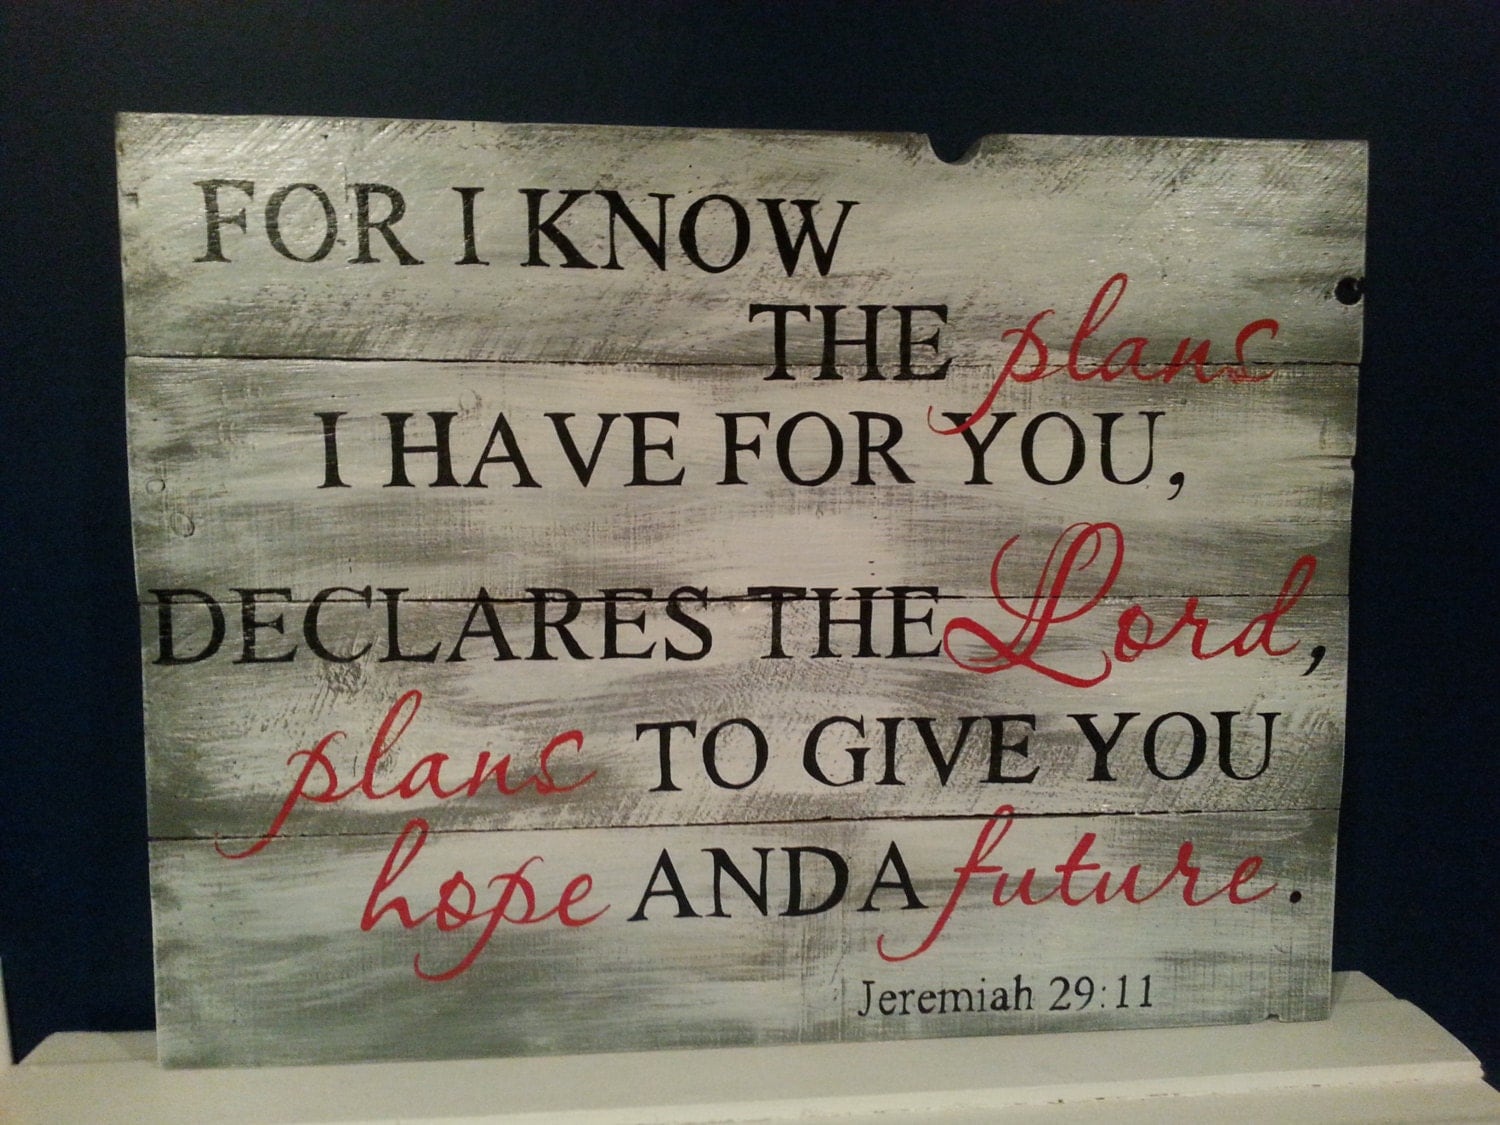 FOR I KNOW
THE plans
I HAVE FOR YOU,
DECLARES THE Lord,
plans TO GIVE YOU
hope AND A future.
Jeremiah 29:11